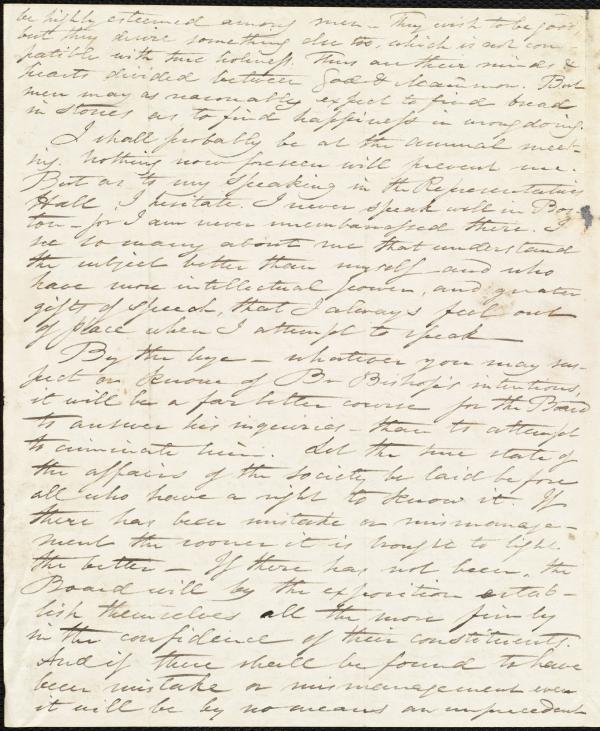 be highly esteemed among men – They wish to be good,
but they desire something else too, which is not com
patible with true holiness. Thus are their minds &
hearts divided between God & Mammon. But
men may as reasonably expect to find bread
in stones as to find happiness in wrong doing.
I shall probably be at the annual meet-
ing. Nothing now foreseen will prevent me.
But as to my speaking in the Representatives
Hall, I hesitate. I never speak well in Bos
ton – for I am never unembarrassed there. I
see so many about me that understand
the subject better than myself and who
have more intellectual power, and greater
gifts of speech, that I always feel out
of place when I attempt to speak
By the bye – whatever you may sus-
pect or know of Br Bishop's intentions,
it will be a far better course for the Board
to answer his inquiries – than to attempt
to criminate him. Let the true state of
the affairs of the society be laid before
all who have a right to know it. If
there has been mistake or mismanage-
ment the sooner it is brought to light
the better – If there has not been, the
Board will by the exposition estab-
lish themselves all the more firmly
in the confidence of their constituents.
And if there shall be found to have
been mistake or mismanagement even
it will be by no means an unprecedent